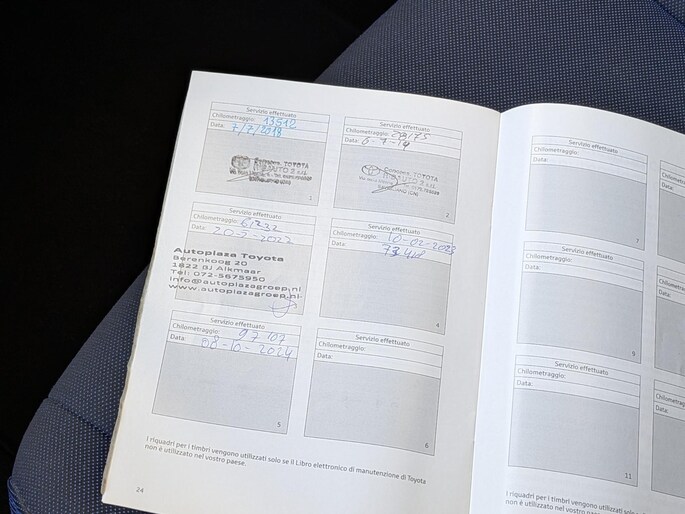 Servizio effettuato
Chilometraggio: 13512
Data: 7/7/2018
TOYOTA
1
Servizio effettuato
Chilometraggio:
Data: 6-7-19
TOYOTA
2
Servizio effettuato
Chilometraggio: 61232
Data: 20-5-2022
Autoplaza Toyota
Berenkoog 20
1822 BJ Alkmaar
Tel: 072-5675950
info@autoplazagroep.nl
www.autoplazagroep.nl
Servizio effettuato
Chilometraggio: 10-02-2023
Data: 73418
4
Servizio effettuato
Chilometraggio: 97107
Data: 08-10-2024
5
Servizio effettuato
Chilometraggio:
Data:
6
I riquadri per i timbri vengono utilizzati solo se il Libro elettronico di manutenzione di Toyota
non è utilizzato nel vostro paese.
24
Servizio effettuato
Chilometraggio:
Data:
7
Servizio effettuato
Chilometraggio:
Data:
9
Servizio effettuato
Chilometraggio:
Data:
11
I riquadri per i timbri vengono utilizzati
non è utilizzato nel vostro paese.